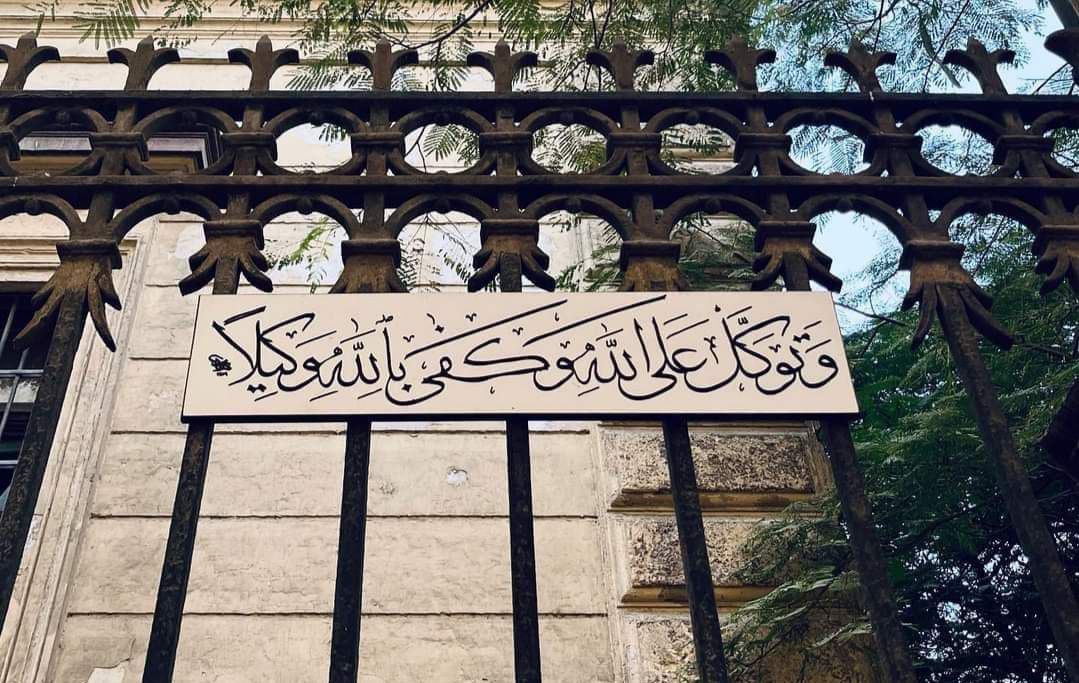 وَتَوَكَّلْ عَلَى اللَّهِ وَكَفَىٰ بِٱللَّهِ وَكِيلًا